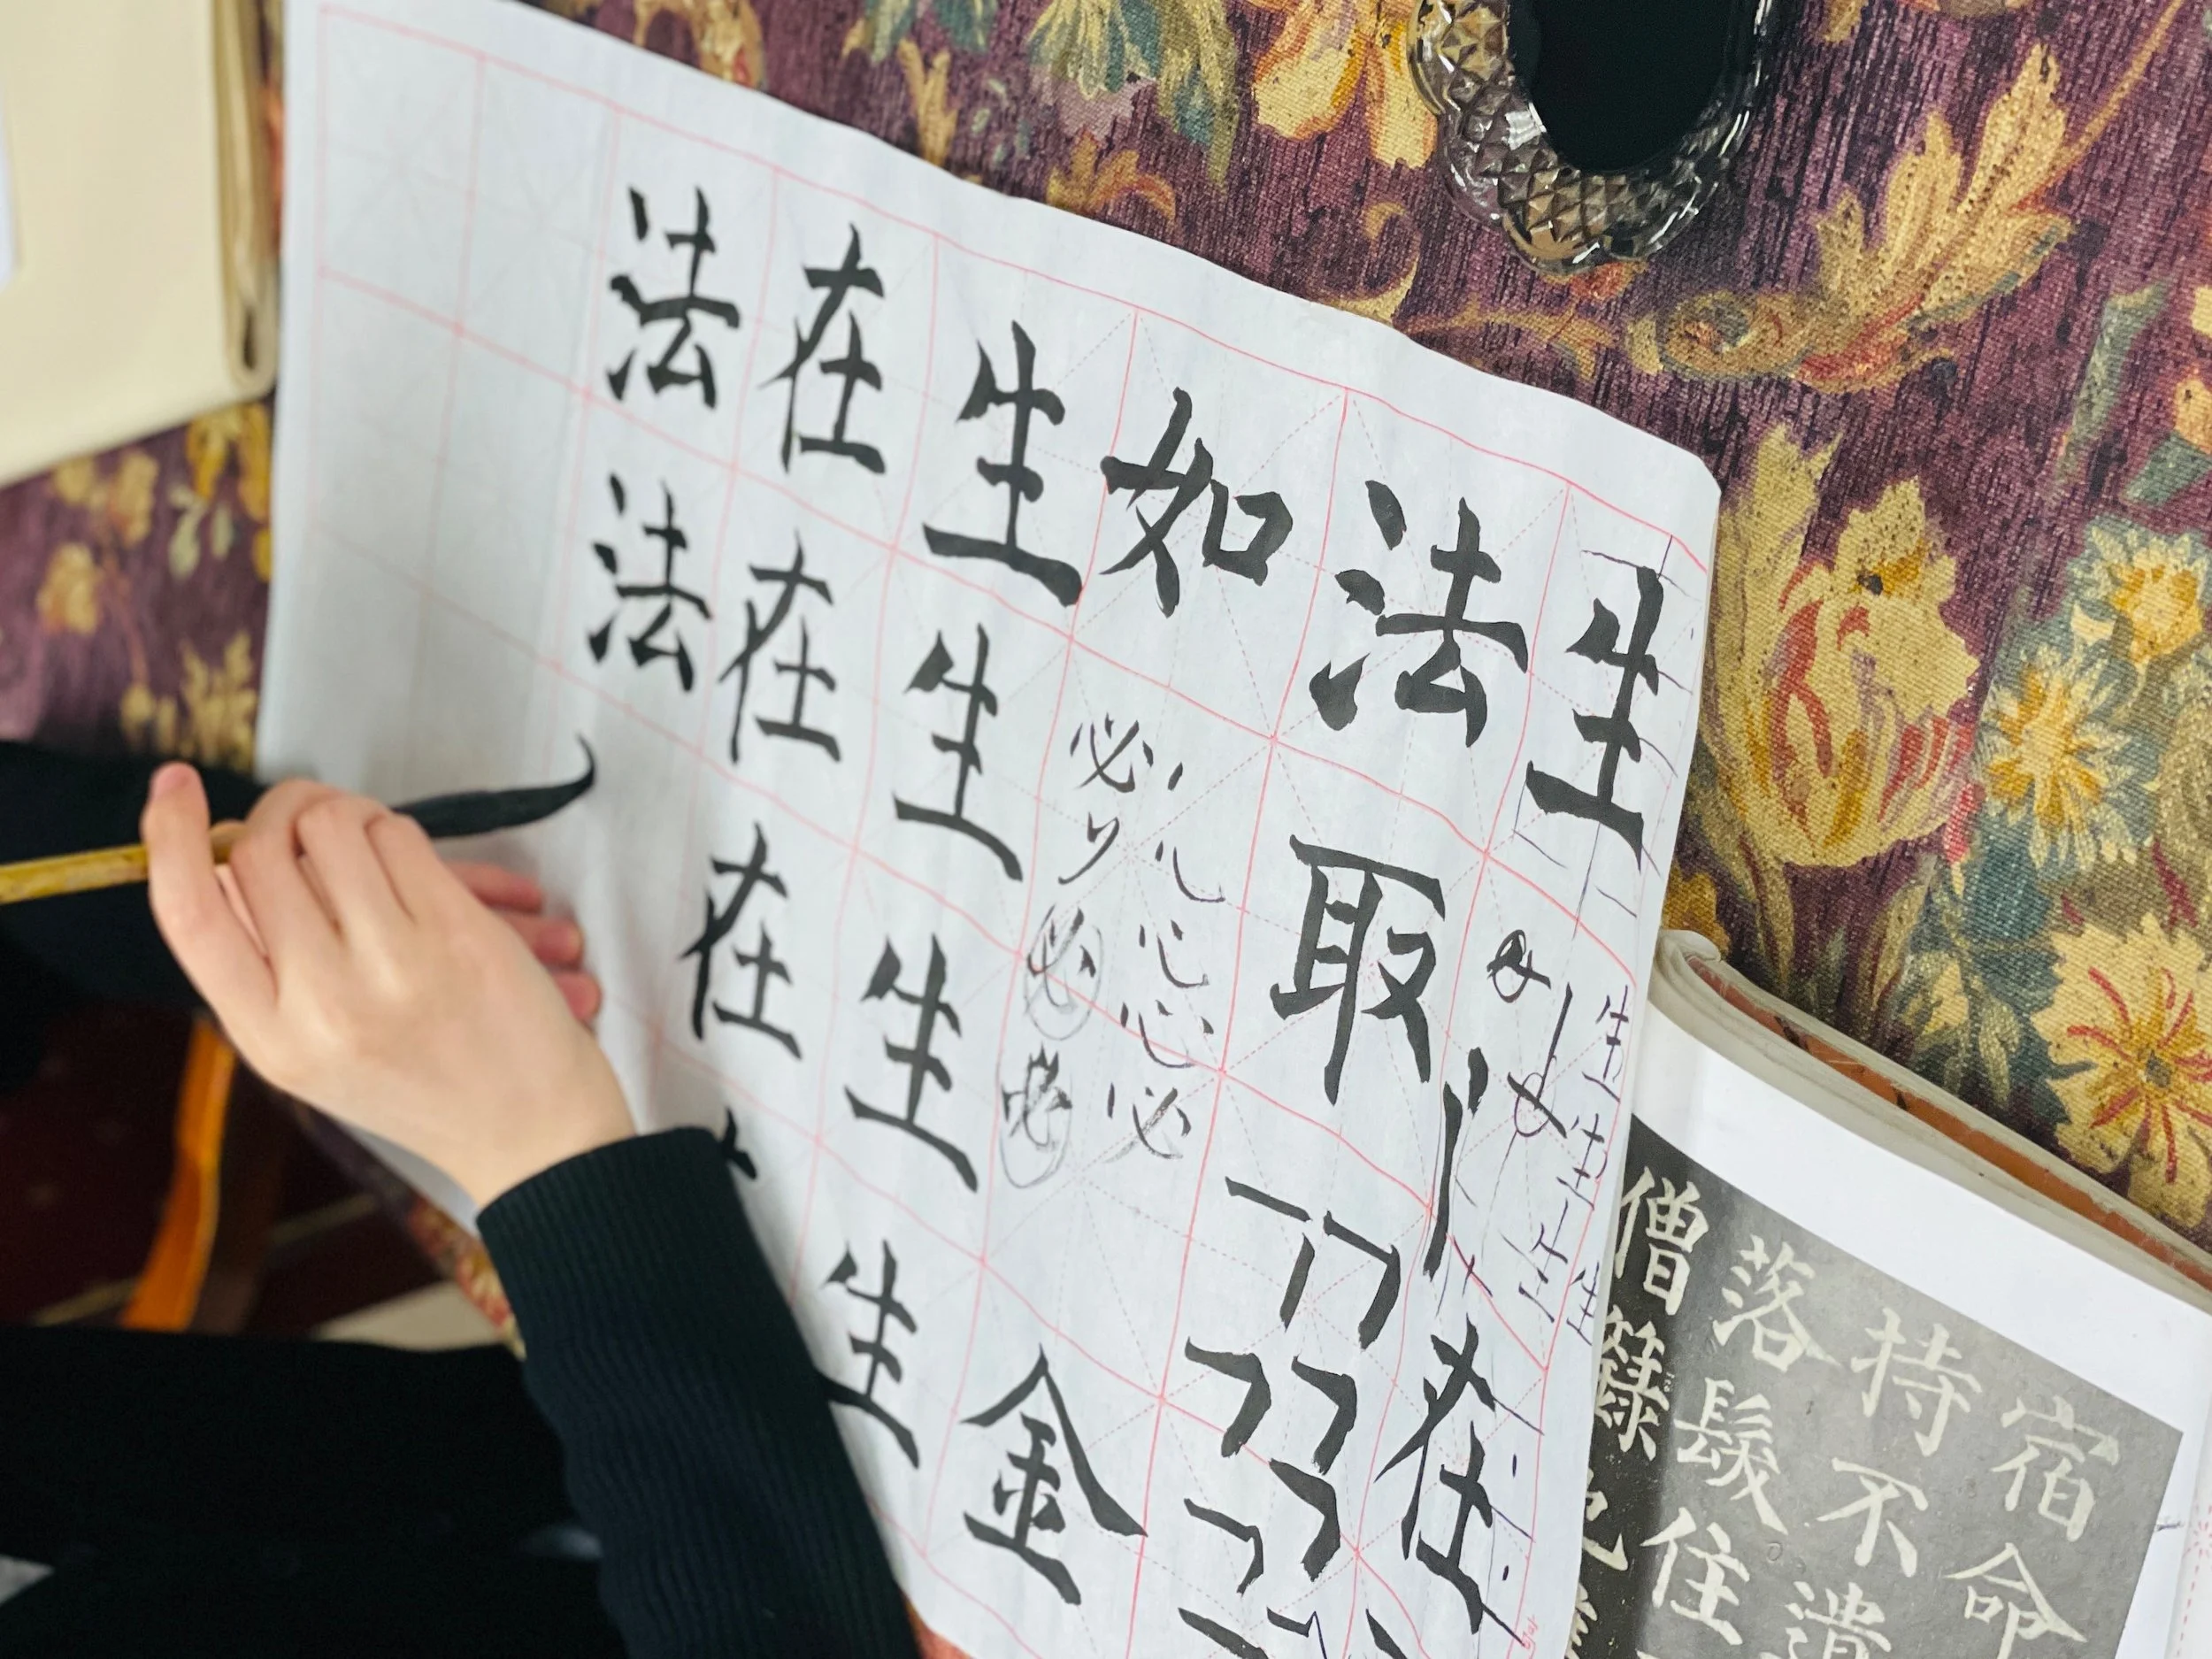 宿命
持不遣
落髮住
僧籙
生
生生生生
在
法取
如
必必
心心必
金
生生生生
在在在
法法